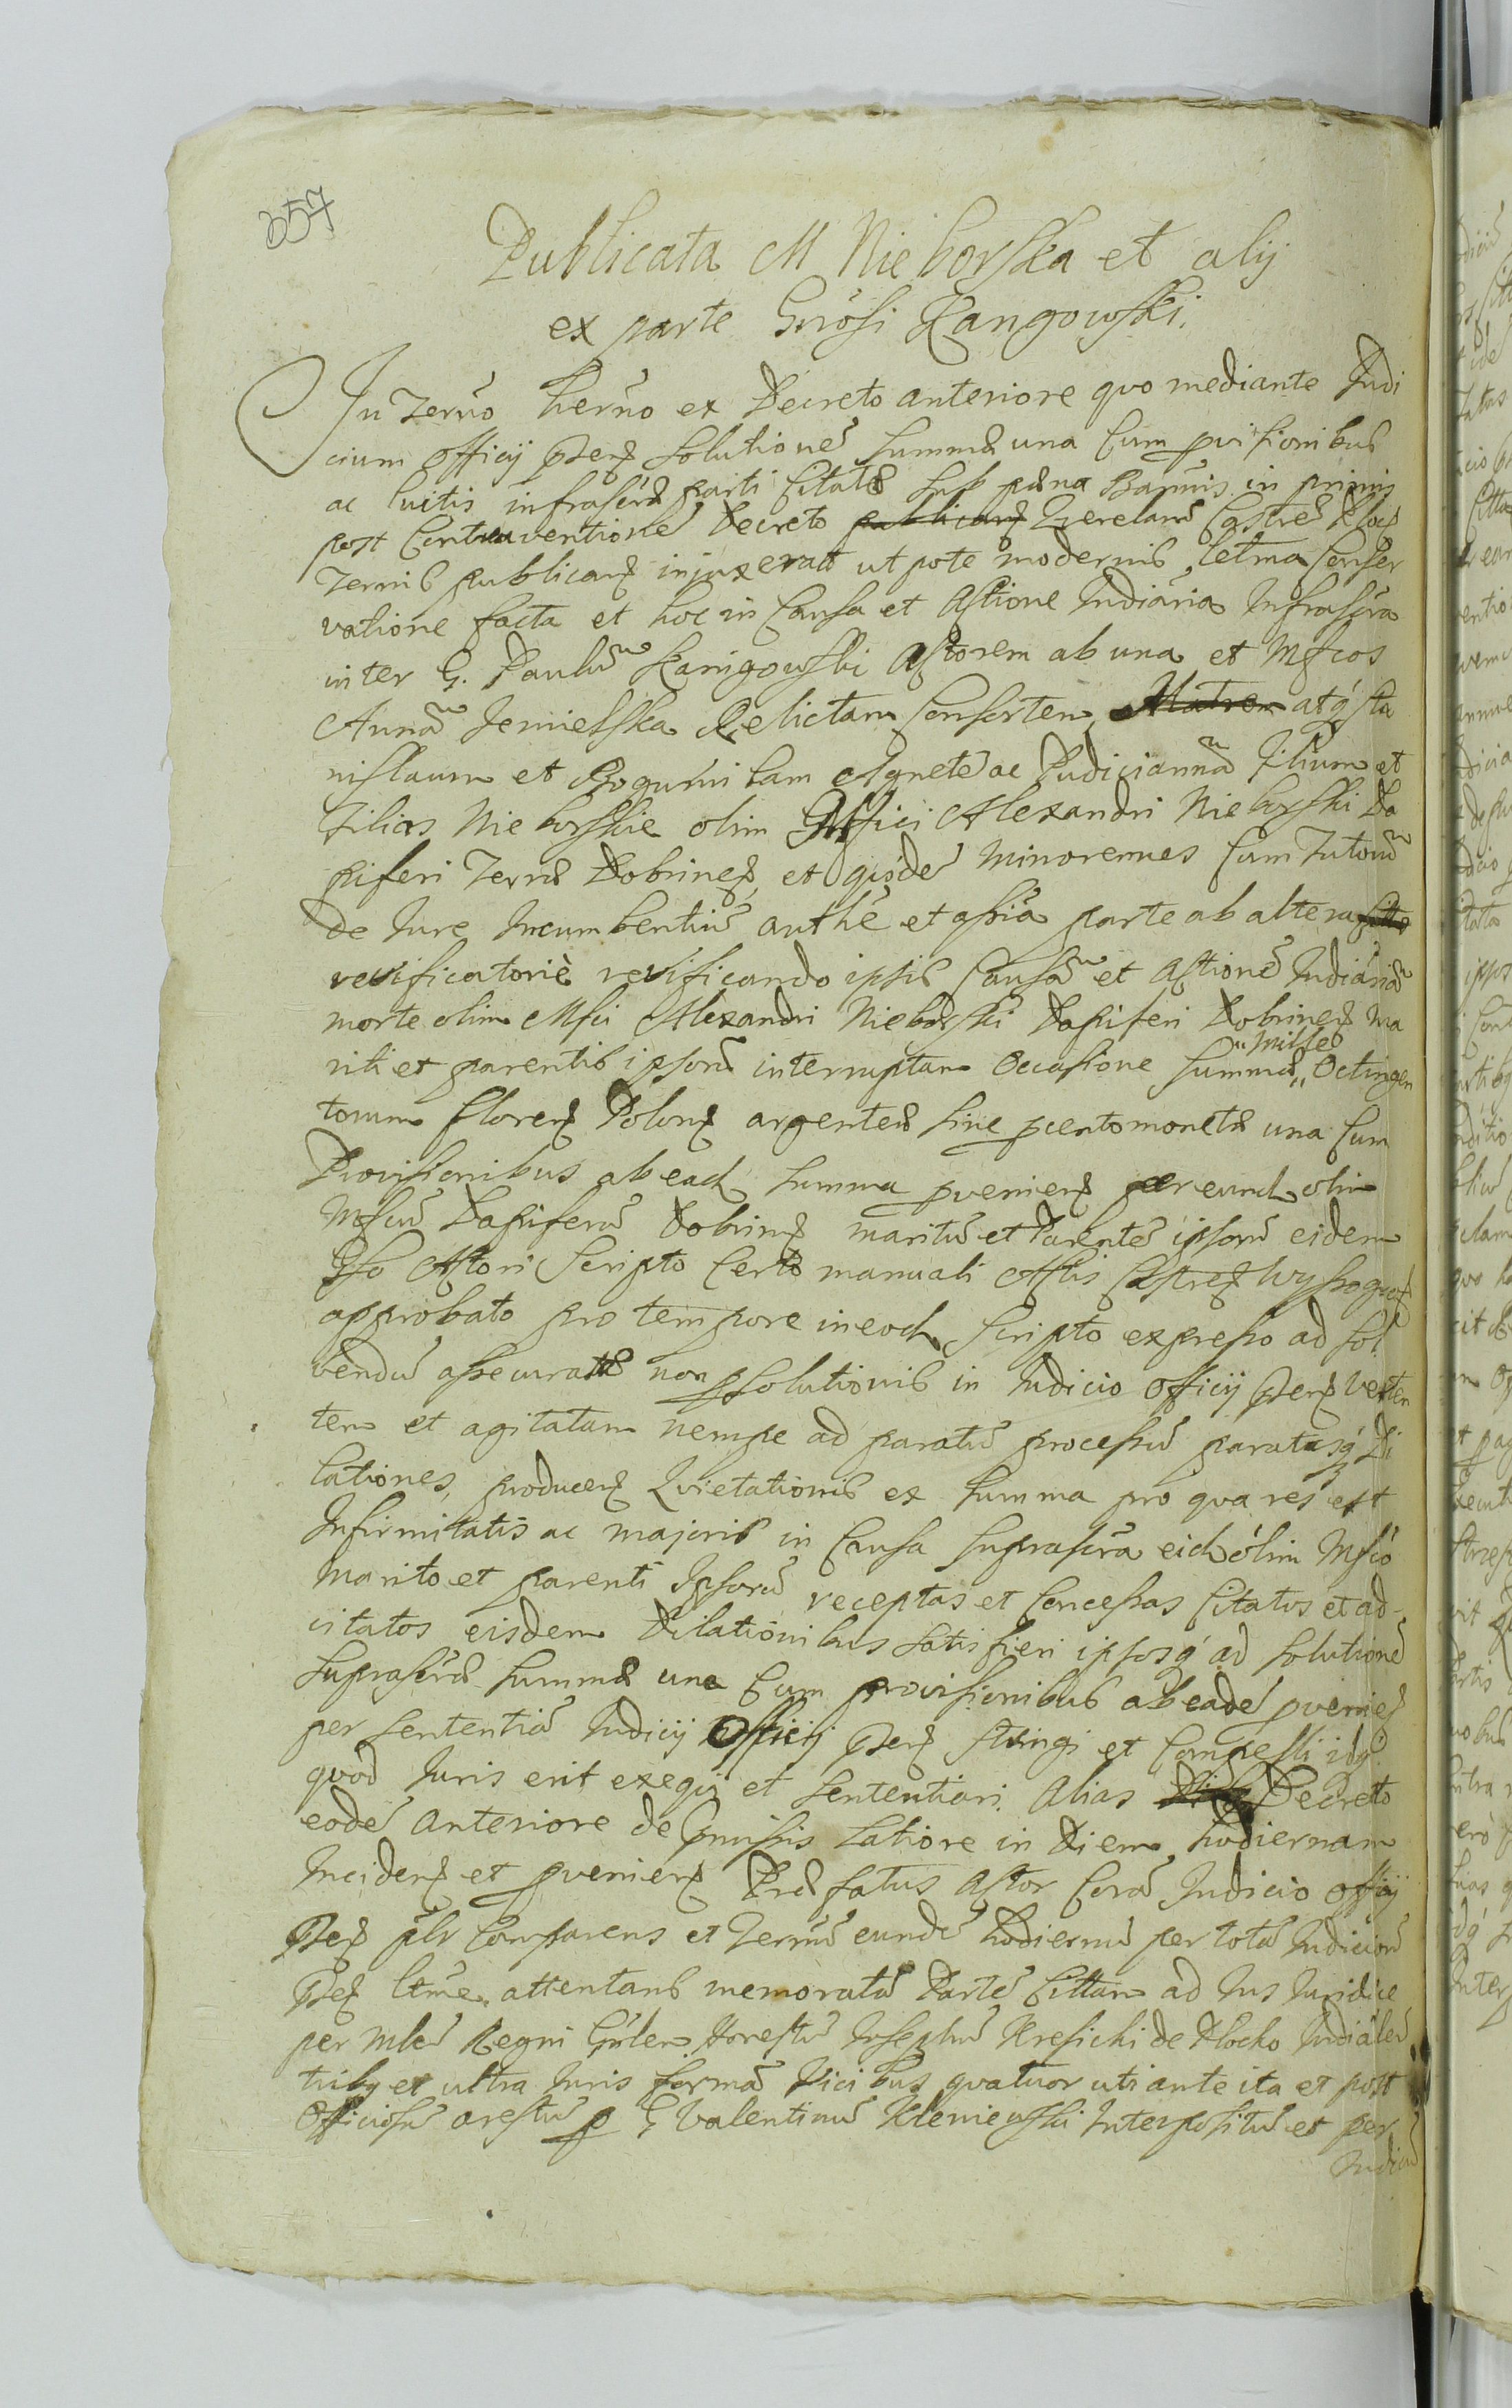 357
Publicata M Nieborska et alij
ex parte Gnrosi Kangowski.
In Termo herno ex Decreto anteriore quo mediante Judi
cium officij pserz solutione summæ una cum pvisionibus
ac luitis infrascræ parti citatæ sub pæna Bannis in primis
post contraventione Decreto publicanz Querelarū Castreñ Ploc
Termis publicanz injuxerat ut pote modernis letma conser
vatione facta et hoc in causa et actione Judiaria infrascra
inter G. Paulū Kanigowski Actorem ab una et Mfcos
Annā Jemielska Relictam consortem Matrem atq Sta
nislaum et Bogumilam Agnete ac Judiciannā Filium et
Filias Nieborskie olim Mfici Alexandri Nieborski Da
piferi Terræ Dobrinez et quide minorennes cum Tutorū
de Jure incumbentiū authē et assiā parte ab altera citta
revificatoriè revificando ipsis causā et actionē Judiariā
morte olim Mfci Alexandri Nieborski Dapiferi Dobrinez ma
riti et parentis ipsorū interruptam occasione summæ „ Mille „ Octingen
torum florenz Polonz argenteæ sive pcento monetæ una cum
Provisionibus ab eadē summa pvenienz per eund olim
Mfcū Dapiferū Dobrinz maritū et Parentē ipsorū eidem
Gso Actori Scripto certo manuali Actis Castrez Wyssogroz
approbato pro tempore in eod scripto expresso ad sol
vendū assecuratæ non psolutionis in Judicio officij pserz verten
tem et agitatam nempe ad paratū processū paratasq Di
lationes, producenz Quietationis ex summa pro qua res est
Infirmitatis ac majoris in causa suprascra eid olim Mfcō
marito et parenti ipsorū receptas et concessas citatos et ad-
citatos eisdem Dilationibus satisfieri ipsosq ad solutionē
suprascræ summæ una cum provisionibus ab eadē pveniez
per sententiā Judicij Officij pserz stringi et compelli idq
quod Juris erit exeqvi et sententiari. Alias Decreto
eodē anteriore de pmissis latiore in Diem hodiernam
Incidenz et pvenienz Præfatus Actor corā Judicio officij
pserz plr comparens et Termū eundē hodiernū per totū Judiciorū
pserz ltme attentans memoratā Partē cittam ad Jus Juridice
per Mlē Regni Gnlem Honestū Josephū Kresicki de Plocko Judialer
tribq et ultra Juris formā vicibus quatuor uti ante ita et post
Officiosū arestū p G Valentinū Kleniewski Interpositū et per
Judiciū